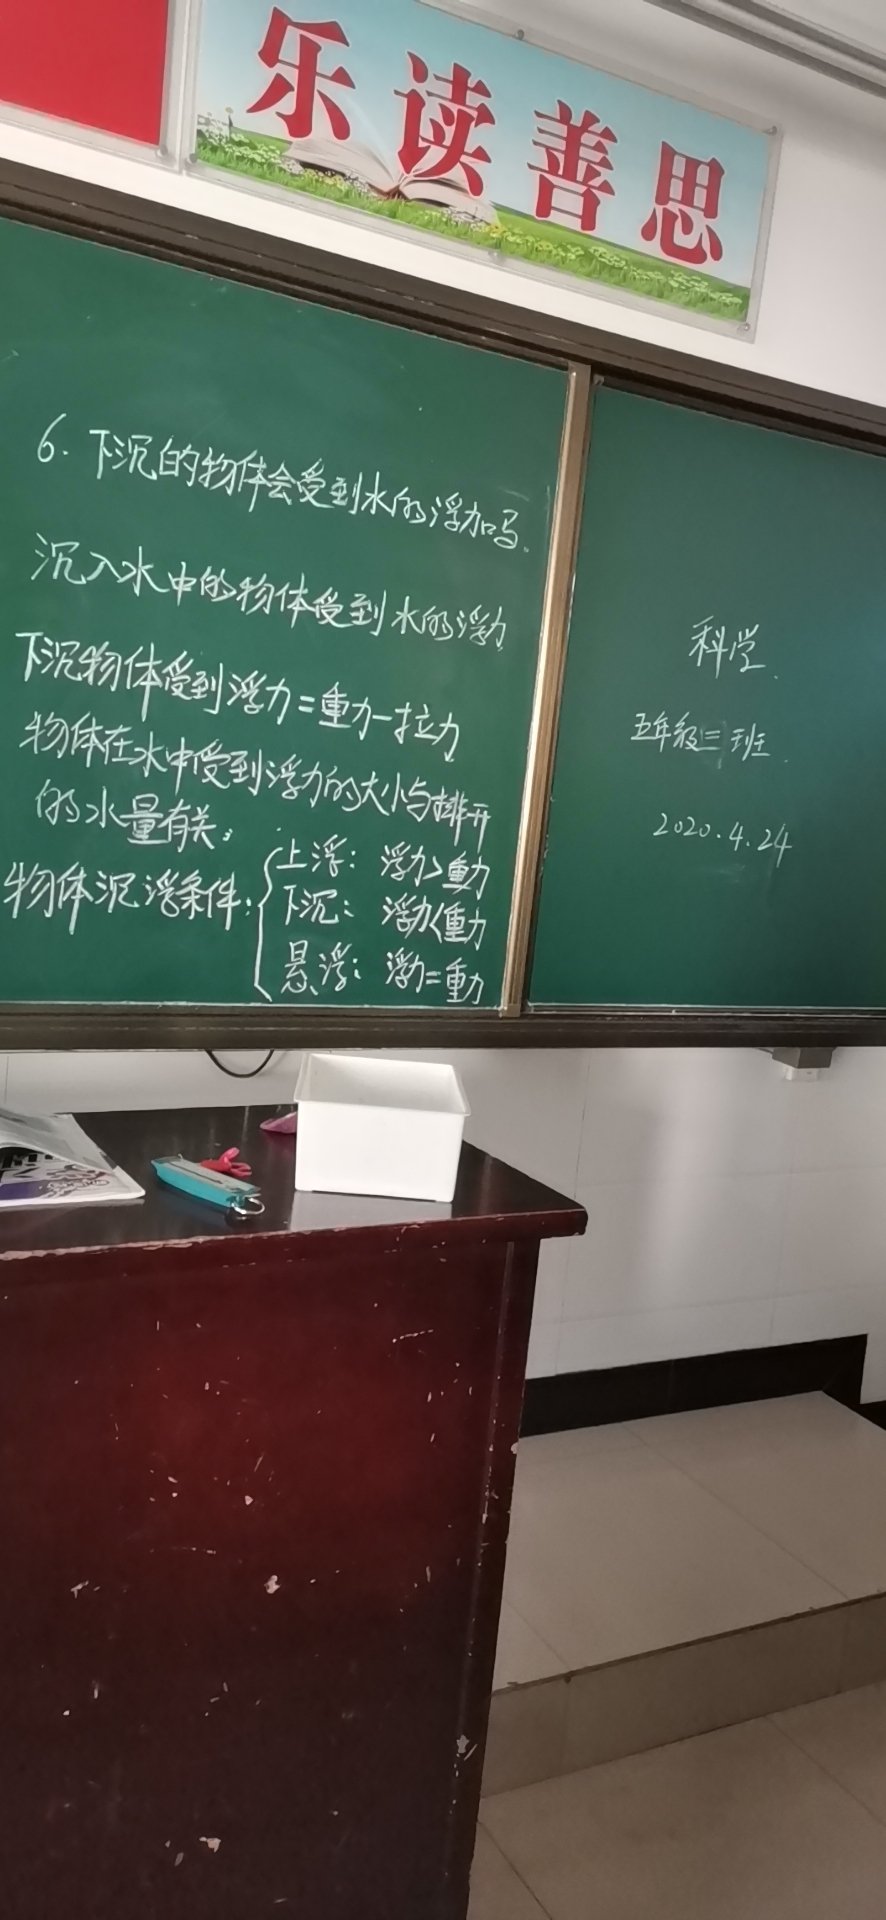 乐读善思
6. 下沉的物体会受到水的浮力吗.
沉入水中的物体受到水的浮力
下沉物体受到浮力=重力-拉力
物体在水中受到浮力的大小与排开
的水量有关;
物体沉浮条件:
上浮: 浮力>重力
下沉: 浮力<重力
悬浮: 浮力=重力
科学
五年级三班
2020.4.24